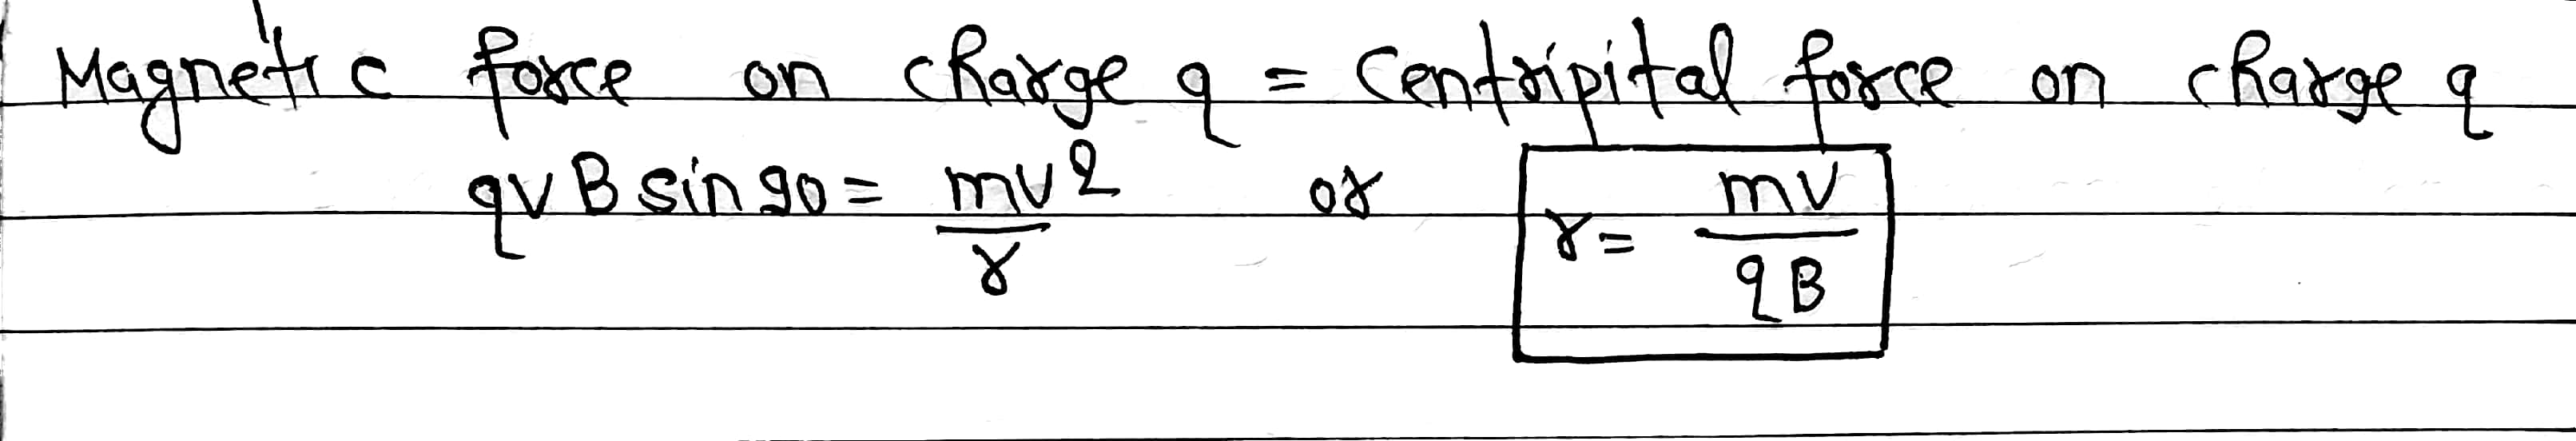 Magnetic force on charge q = Centripital force on charge q
qvB sin 90 = mv²/r or r = mv/qB